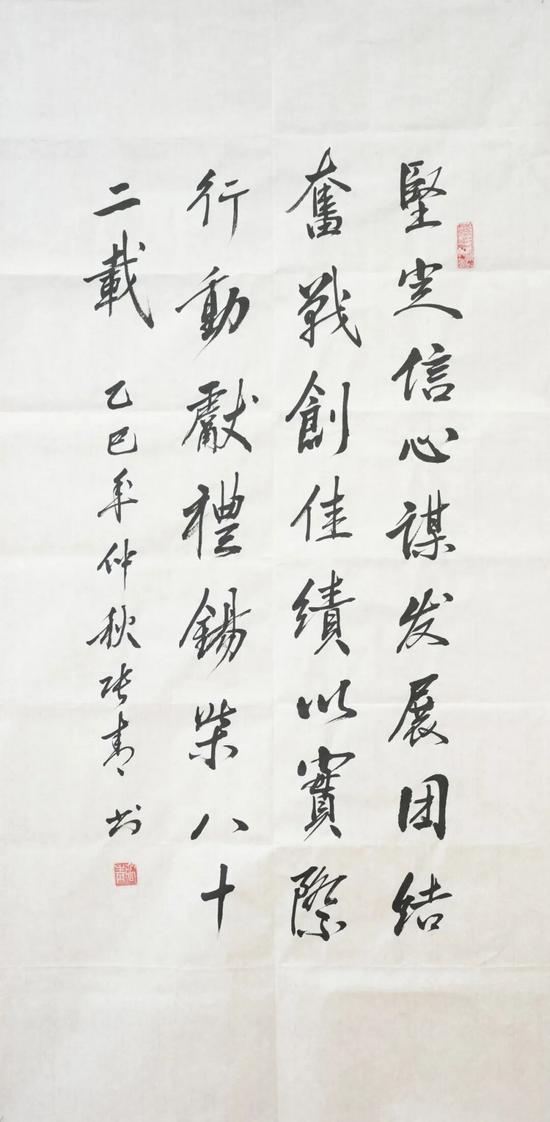 堅定信心謀发展团结
奮戰創佳績以實際
行動獻禮錫柴八十
二載
乙巳年仲秋张青书